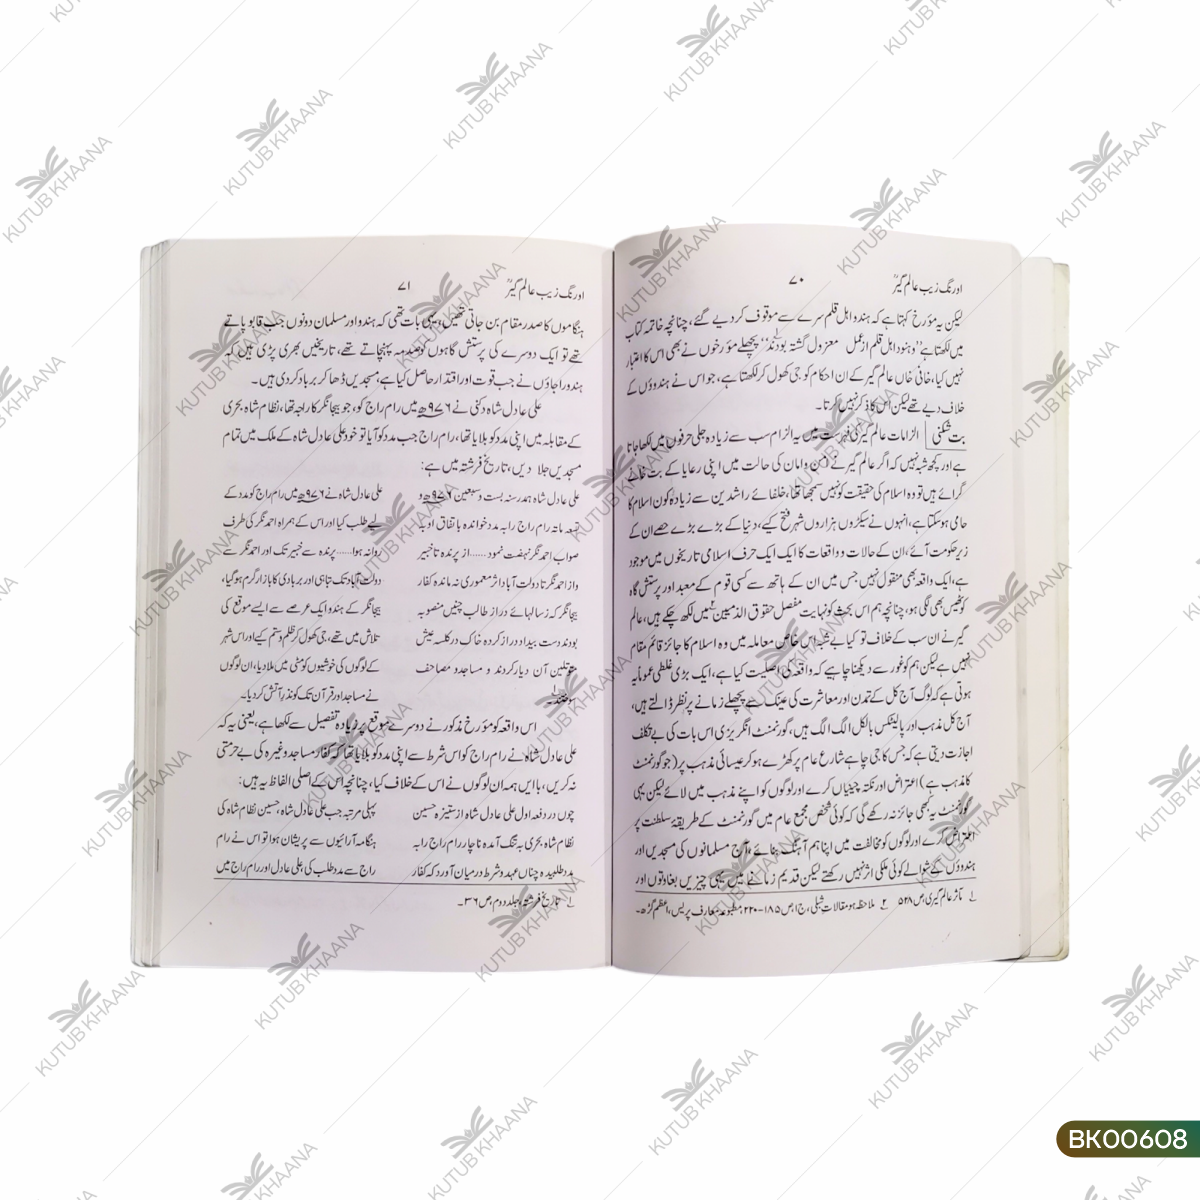 اورنگ زیب عالم گیرؒ
۷۰
لیکن یہ مؤرخ کہتا ہے کہ ہندو اہل قلم سرے سے موقوف کر دیے گئے، چنانچہ خاتمہ کتاب
میں لکھتا ہے "وہنود اہل قلم از عمل معزول گشتہ بودند" پچھلے مؤرخوں نے بھی اس کا اعتبار
نہیں کیا، خافی خاں عالم گیر کے ان احکام کو جی کھول کر لکھتا ہے، جو اس نے ہندوؤں کے
خلاف دیے تھے لیکن اس کا ذکر نہیں کرتا۔
بت شکنی الزامات عالم گیر کی فہرست میں یہ الزام سب سے زیادہ جلی حرفوں میں لکھا جاتا
ہے اور کچھ شبہ نہیں کہ اگر عالم گیر نے امن و امان کی حالت میں اپنی رعایا کے بت خانے
گرائے ہیں تو وہ اسلام کی حقیقت کو نہیں سمجھا تھا، خلفائے راشدین سے زیادہ کون اسلام کا
حامی ہو سکتا ہے، انہوں نے سیکڑوں ہزاروں شہر فتح کیے، دنیا کے بڑے بڑے حصے ان کے
زیر حکومت آئے، ان کے حالات و واقعات کا ایک ایک حرف اسلامی تاریخوں میں موجود
ہے، ایک واقعہ بھی منقول نہیں جس میں ان کے ہاتھ سے کسی قوم کے معبد اور پرستش گاہ
کو ٹھیس بھی لگی ہو، چنانچہ ہم اس بحث کو نہایت مفصل حقوق الذمیین میں لکھ چکے ہیں، عالم
گیر نے ان سب کے خلاف تو کیا بے شبہ اس خاص معاملہ میں وہ اسلام کا جائز قائم مقام
نہیں ہے لیکن ہم کو غور سے دیکھنا چاہے کہ واقعہ کی اصلیت کیا ہے، ایک بڑی غلطی عموماً یہ
ہوتی ہے کہ لوگ آج کل کے تمدن اور معاشرت کی عینک سے پچھلے زمانے پر نظر ڈالتے ہیں،
آج کل مذہب اور پالیٹکس بالکل الگ الگ ہیں، گورنمنٹ انگریزی اس بات کی بے تکلف
اجازت دیتی ہے کہ جس کا جی چاہے شارع عام پر کھڑے ہو کر عیسائی مذہب پر (جو گورنمنٹ
کا مذہب ہے) اعتراض اور نکتہ چینیاں کرے اور لوگوں کو اپنے مذہب میں لائے لیکن یہی
گورنمنٹ یہ کبھی جائز نہ رکھے گی کہ کوئی شخص مجمع عام میں گورنمنٹ کے طریقۂ سلطنت پر
اعتراض کرے اور لوگوں کو مخالفت میں اپنا ہم آہنگ بنائے، آج مسلمانوں کی مسجدیں اور
ہندوؤں کے شوالے کوئی ملکی اثر نہیں رکھتے لیکن قدیم زمانے میں یہی چیزیں بغاوتوں اور
۱ مآثر عالم گیری، ص ۵۲۸ ۲ ملاحظہ ہو مقالاتِ شبلی، ج ۱، ص ۱۸۵–۲۲۰، مطبوعہ معارف پریس، اعظم گڑھ۔
اورنگ زیب عالم گیرؒ
۷۱
ہنگاموں کا صدر مقام بن جاتی تھیں، یہی بات تھی کہ ہندو اور مسلمان دونوں جب قابو پاتے
تھے تو ایک دوسرے کی پرستش گاہوں کو صدمہ پہنچاتے تھے، تاریخیں بھری پڑی ہیں کہ
ہندو راجاؤں نے جب قوت اور اقتدار حاصل کیا ہے، مسجدیں ڈھا کر برباد کر دی ہیں۔
علی عادل شاہ دکنی نے ۹۷۶ھ میں رام راج کو، جو بیجانگر کا راجہ تھا، نظام شاہ بحری
کے مقابلہ میں اپنی مدد کو بلایا تھا، رام راج جب مدد کو آیا تو خود علی عادل شاہ کے ملک میں تمام
مسجدیں جلا دیں، تاریخ فرشتہ میں ہے:
علی عادل شاہ در سنہ بست و سبعین ۹۷۶ھ و
تسعہ مائۃ رام راج را بہ مدد خواندہ با تفاق او بہ
صواب احمد نگر نہضت نمود...... از پرندہ تا خیبر
و از احمد نگر تا دولت آباد اثر معموری نہ ماندہ کفار
بیجانگر کہ زسالہائے دراز طالب چنیں منصوبہ
بودند دست بیداد دراز کردہ خاک در کلسہ عیش
متوطنین آن دیار کردند و مساجد و مصاحف
سوختند۔
علی عادل شاہ نے ۹۷۶ھ میں رام راج کو مدد کے
لیے طلب کیا اور اس کے ہمراہ احمد نگر کی طرف
روانہ ہوا...... پرندہ سے خیبر تک اور احمد نگر سے
دولت آباد تک تباہی اور بربادی کا بازار گرم ہو گیا،
بیجانگر کے ہندو ایک عرصے سے ایسے موقع کی
تلاش میں تھے، جی کھول کر ظلم و ستم کیے اور اس شہر
کے لوگوں کی خوشیوں کو مٹی میں ملا دیا، ان لوگوں
نے مساجد اور قرآن تک کو نذر آتش کر دیا۔
اس واقعہ کو مؤرخ مذکور نے دوسرے موقع پر زیادہ تفصیل سے لکھا ہے، یعنی یہ کہ
علی عادل شاہ نے رام راج کو اس شرط سے اپنی مدد کو بلایا تھا کہ کفار مساجد وغیرہ کی بے حرمتی
نہ کریں، بایں ہمہ ان لوگوں نے اس کے خلاف کیا، چنانچہ اس کے اصلی الفاظ یہ ہیں:
چوں در دفعہ اول علی عادل شاہ از ستیزہ حسین
نظام شاہ بحری بہ تنگ آمدہ ناچار رام راج را بہ
مدد طلبیدہ چناں عہد و شرط درمیان آورد کہ کفار
پہلی مرتبہ جب علی عادل شاہ، حسین نظام شاہ کی
ہنگامہ آرائیوں سے پریشان ہوا تو اس نے رام
راج سے مدد طلب کی، علی عادل اور رام راج میں
۱ تاریخ فرشتہ، جلد دوم، ص ۳۶۔
KUTUB KHAANA
BK00608